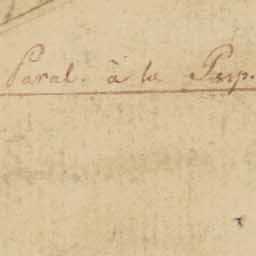 Paral. à la Perp.